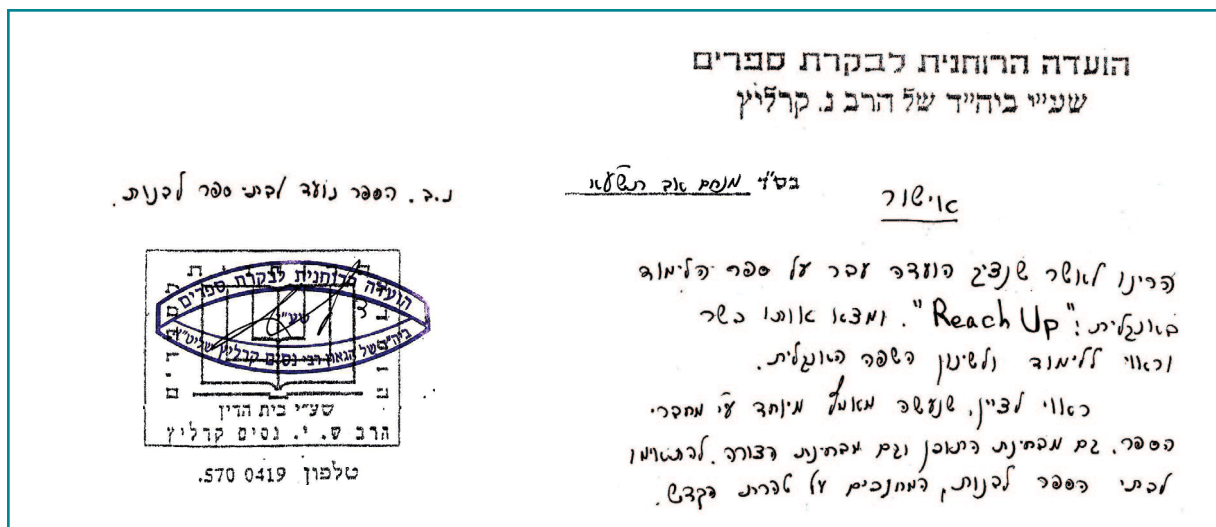 הועדה הרוחנית לבקרת ספרים
שע״י ביה״ד של הרב נ. קרליץ
בס״ד מנחם אב תשע״א
אישור
הרינו לאשר שנציג הועדה עבר על ספר הלימוד
באנגלית: "Reach Up". ומצא אותו כשר
וראוי ללימוד ולשינון השפה האנגלית.
ראוי לציין, שנעשה מאמץ מיוחד ע״י מחברי
הספר, גם מבחינת התוכן וגם מבחינת הצורה, להתאימו
לבתי הספר לבנות, המחנכים על טהרת הקדש.
נ.ב. הספר נועד לבתי ספר לבנות.
הועדה הרוחנית לבקרת ספרים
שע״י
ביה״ד של הגאון רבי נסים קרליץ שליט״א
שע״י בית הדין
הרב ש. י. נסים קרליץ
טלפון 570 0419.